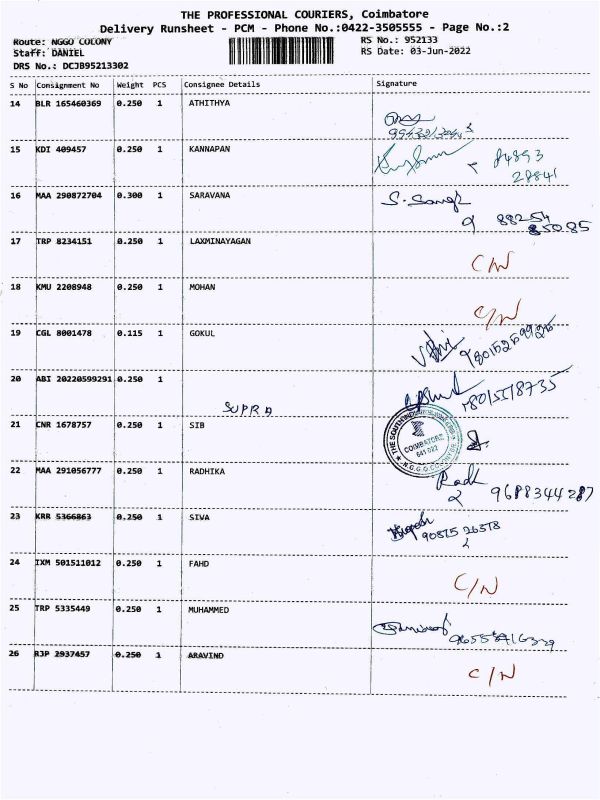 THE PROFESSIONAL COURIERS, Coimbatore
Delivery Runsheet - PCM - Phone No.:0422-3505555 - Page No.:2
Route: NGGO COLONY
RS No.: 952133
Staff: DANIEL
RS Date: 03-Jun-2022
DRS No.: DCJB95213302
S No Consignment No Weight PCS Consignee Details Signature
14 BLR 165460369 0.250 1 ATHITHYA
15 KDI 409457 0.250 1 KANNAPAN
84893
28841
16 MAA 290872704 0.300 1 SARAVANA
88254
85085
17 TRP 8234151 0.250 1 LAXMINAYAGAN
C/N
18 KMU 2208948 0.250 1 MOHAN
C/N
19 CGL 8001478 0.115 1 GOKUL
20 ABI 20220599291 0.250 1
SUPRA
21 CNR 1678757 0.250 1 SIB
COIMBATORE
641 022
N.G.G.O.COLONY
22 MAA 291056777 0.250 1 RADHIKA
9688344287
23 KRR 5366863 0.250 1 SIVA
24 IXM 501511012 0.250 1 FAHD
C/N
25 TRP 5335449 0.250 1 MUHAMMED
26 RJP 2937457 0.250 1 ARAVIND
C/N